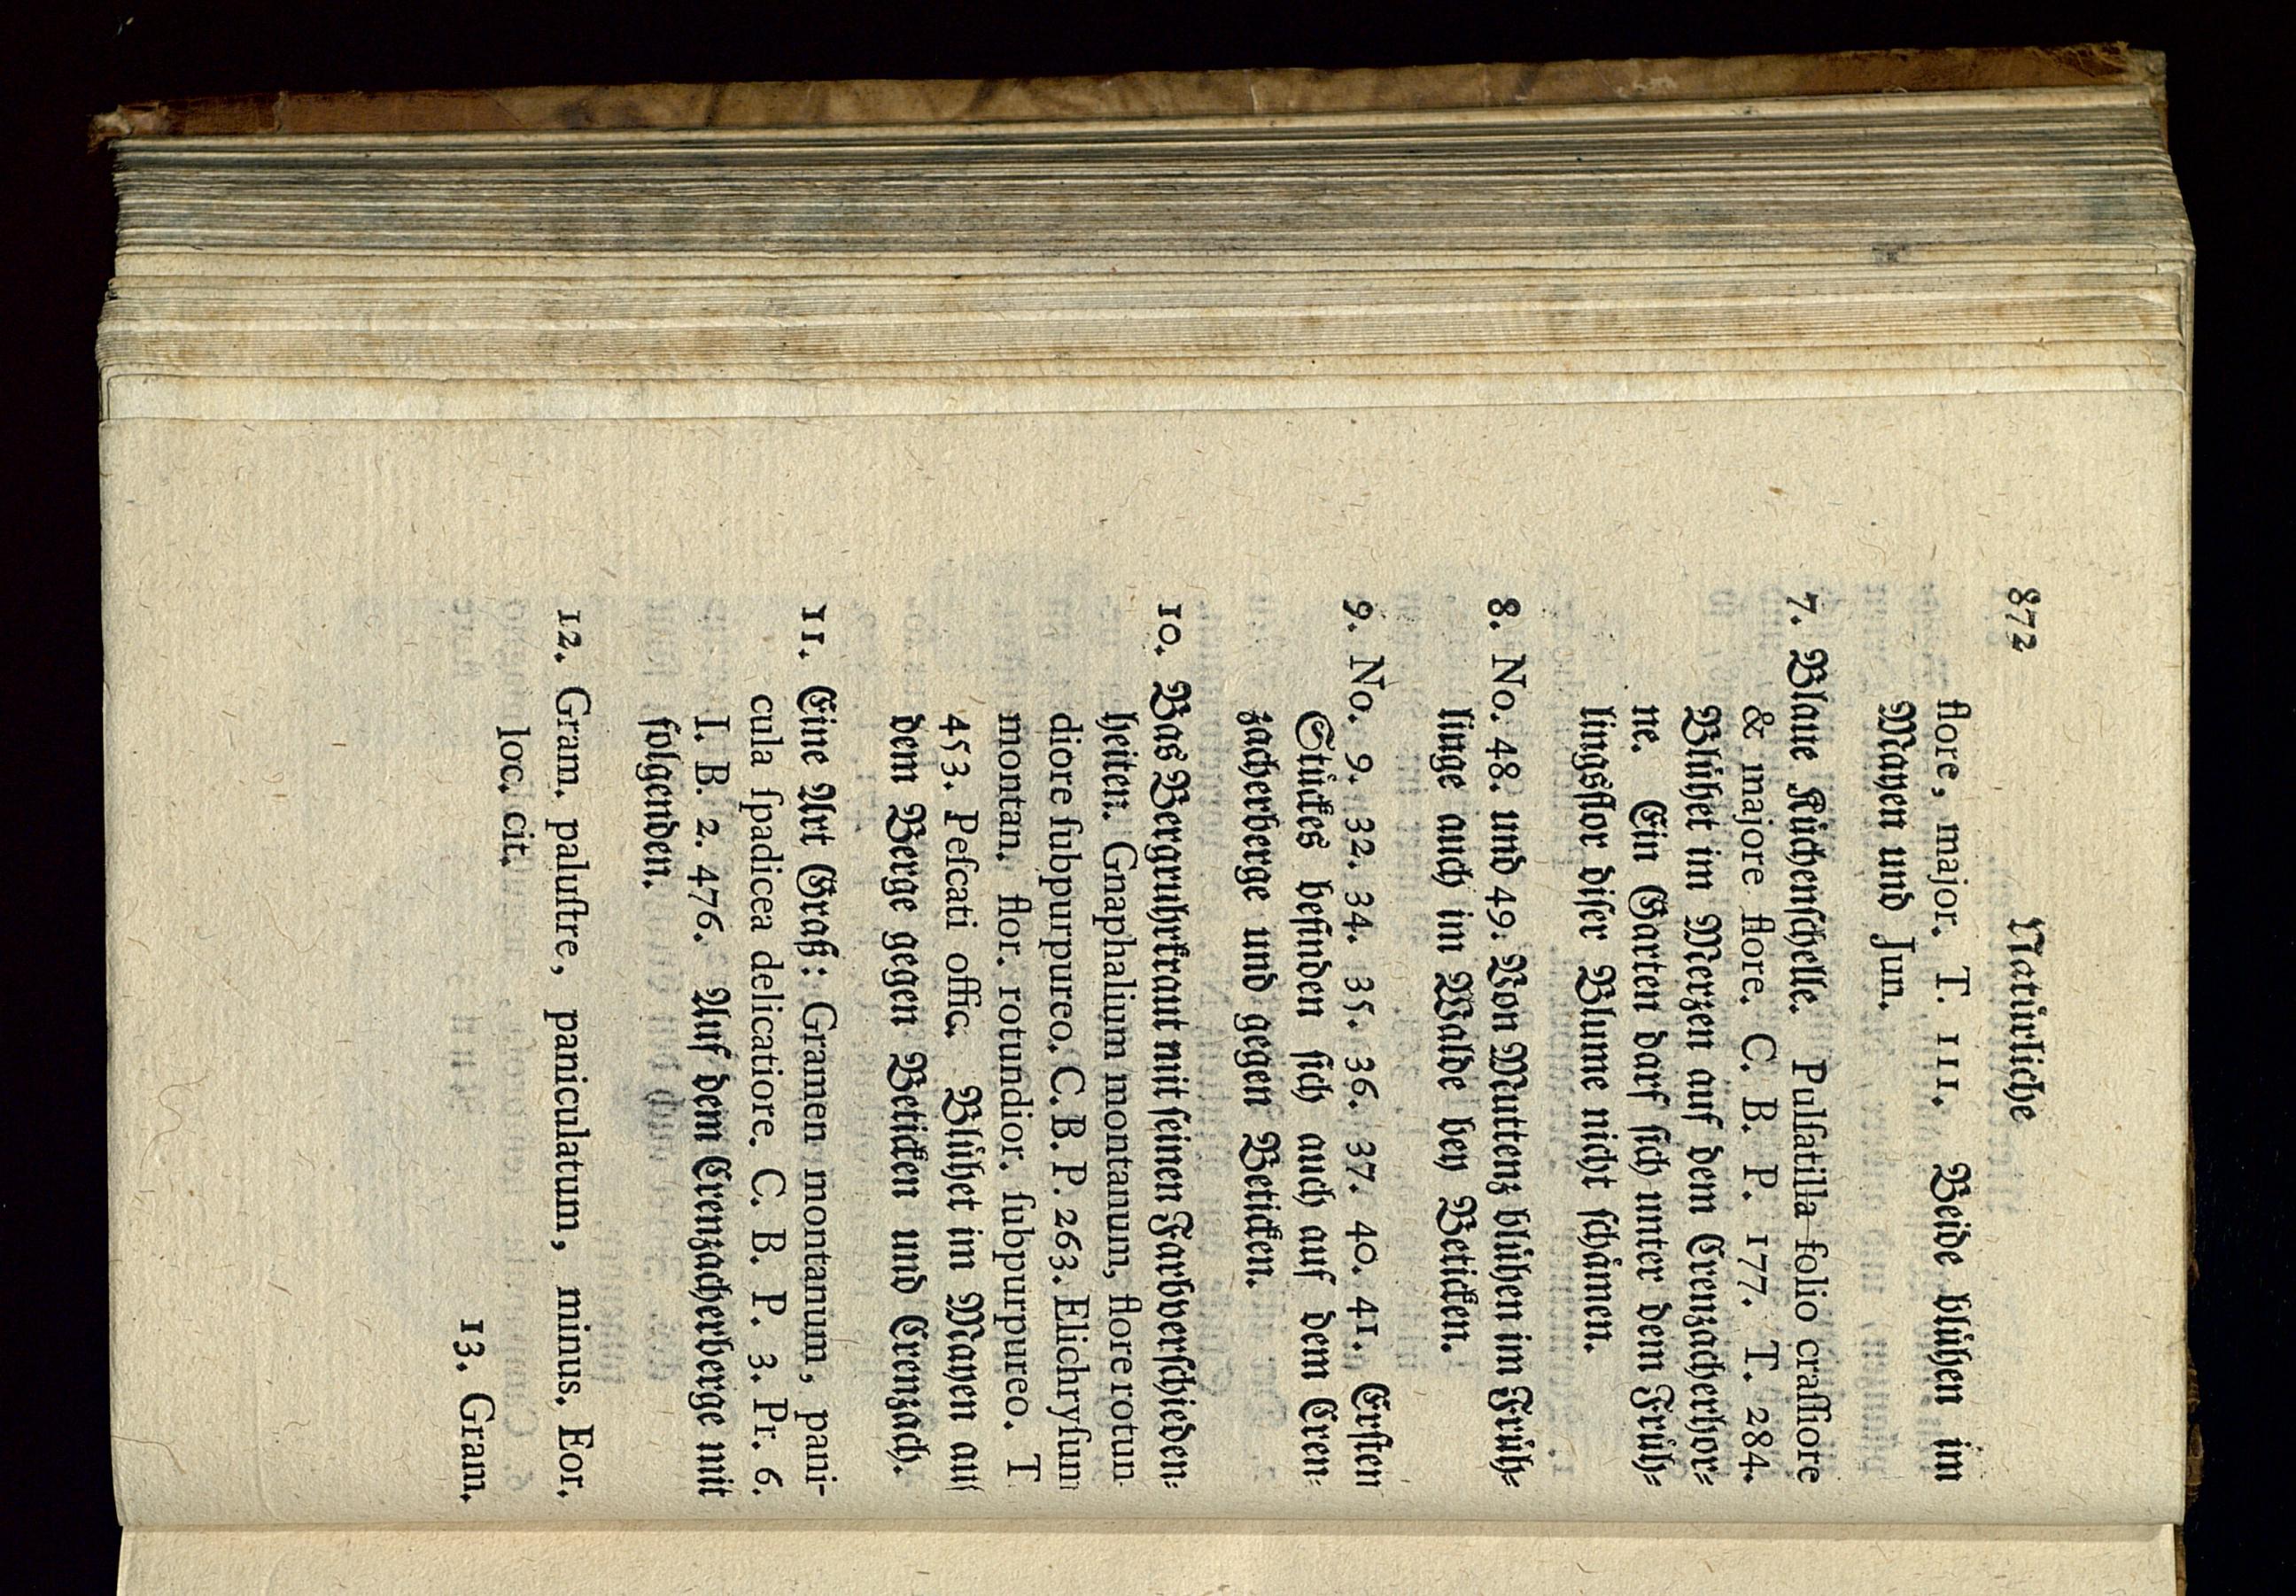 872 Natürliche
flore, major. T. 111. Beide blühen im
Mayen und Jun.
7. Blaue Küchenschelle. Pulſatilla folio craſſiore
& majore flore. C. B. P. 177. T. 284.
Blühet im Merzen auf dem Crenzacherhor⸗
ne. Ein Garten darf ſich unter dem Früh⸗
lingsflor diſer Blume nicht ſchämen.
8. No. 48. und 49. Von Muttenz blühen im Früh⸗
linge auch im Walde bey Beticken.
9. No. 9. 32. 34. 35. 36. 37. 40. 41. Erſten
Stückes befinden ſich auch auf dem Cren⸗
zacherberge und gegen Beticken.
10. Das Bergruhrkraut mit ſeinen Farbverſchieden⸗
heiten. Gnaphalium montanum, flore rotun-
diore ſubpurpureo. C. B. P. 263. Elichryſum
montan. flor. rotundior. ſubpurpureo. T
453. Peſcati offic. Blühet im Mayen auf
dem Berge gegen Beticken und Crenzach.
11. Eine Art Graß: Gramen montanum, pani-
cula ſpadicea delicatiore. C. B. P. 3. Pr. 6.
I. B. 2. 476. Auf dem Crenzacherberge mit
folgenden.
12. Gram. paluſtre, paniculatum, minus. Eor.
loc. cit.
13. Gram.